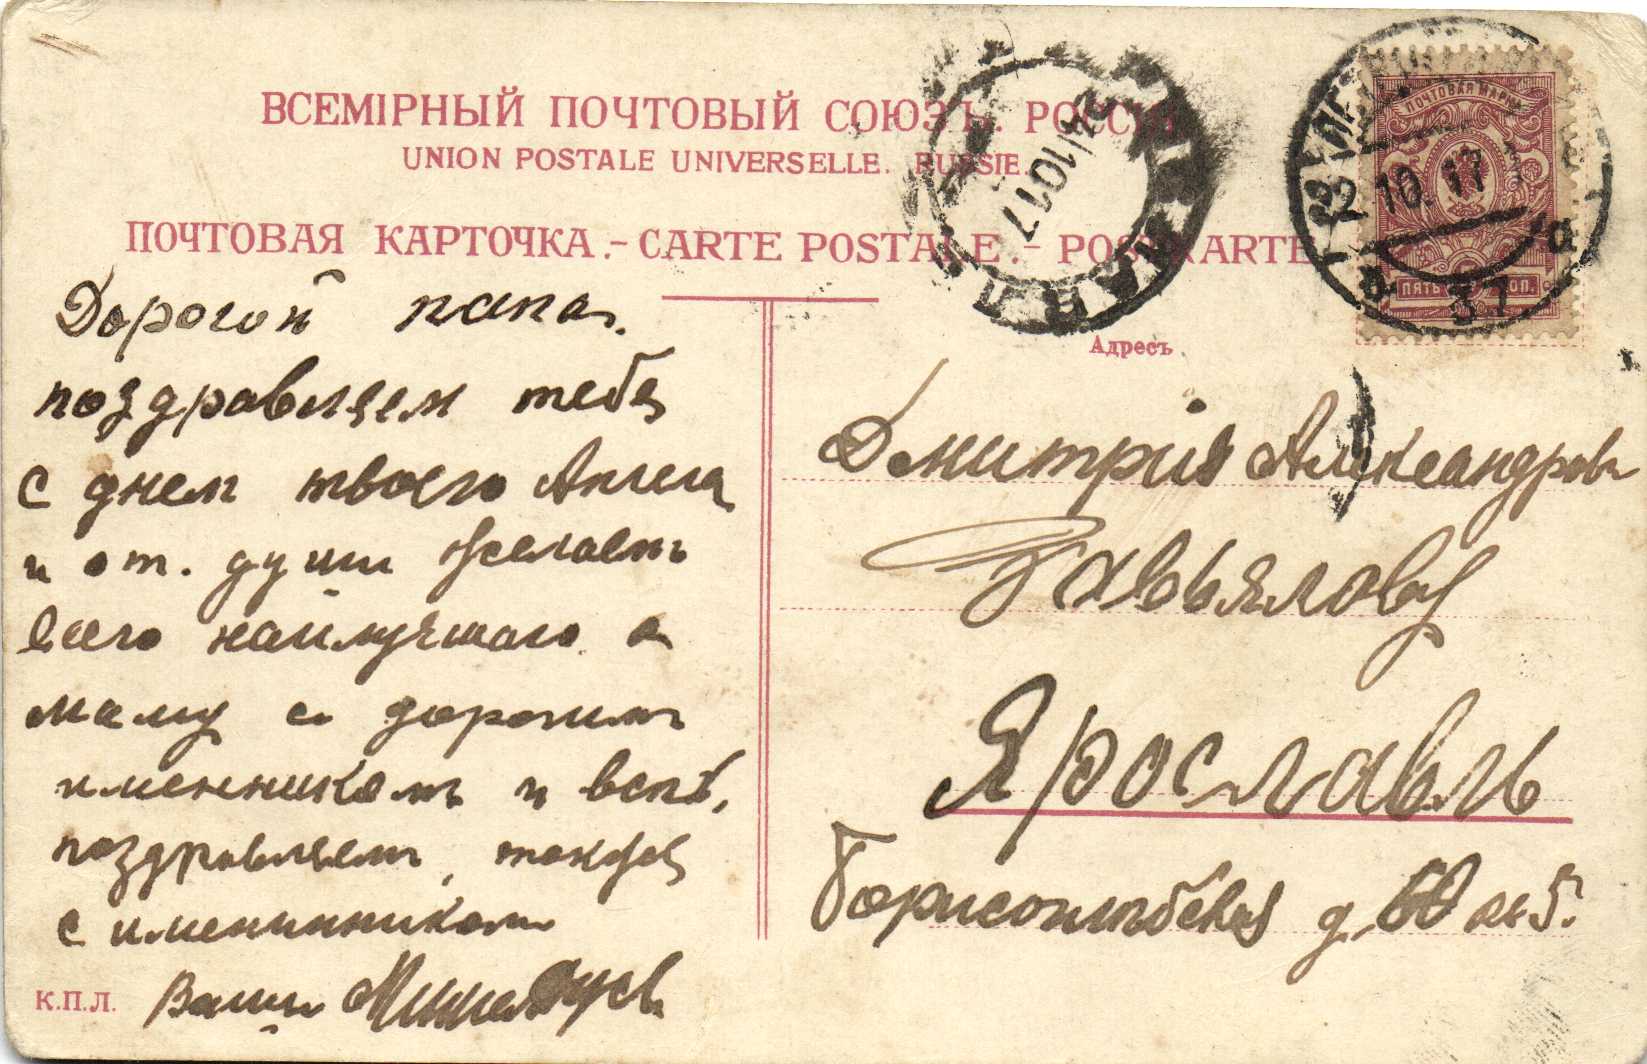 ВСЕМІРНЫЙ ПОЧТОВЫЙ СОЮЗЪ. РОССІЯ
UNION POSTALE UNIVERSELLE. RUSSIE.
ПОЧТОВАЯ КАРТОЧКА.-CARTE POSTALE.- POSTKARTE
ПОЧТОВАЯ МАРКА
22.10.17
37
ПЯТЬ КОП.
24 10 17
Дорогой папа.
поздравляем тебя
с днем твоего Ангела
и от. души желаем
всего найлучшаго а
маму с дорогим
именником и всѣ,
поздравляем, также
с именинником
Ваши
К.П.Л.
Адресъ
Дмитрію Александров
Завьялову
Ярославль
Борисоглѣбская д. 60 кв 5.